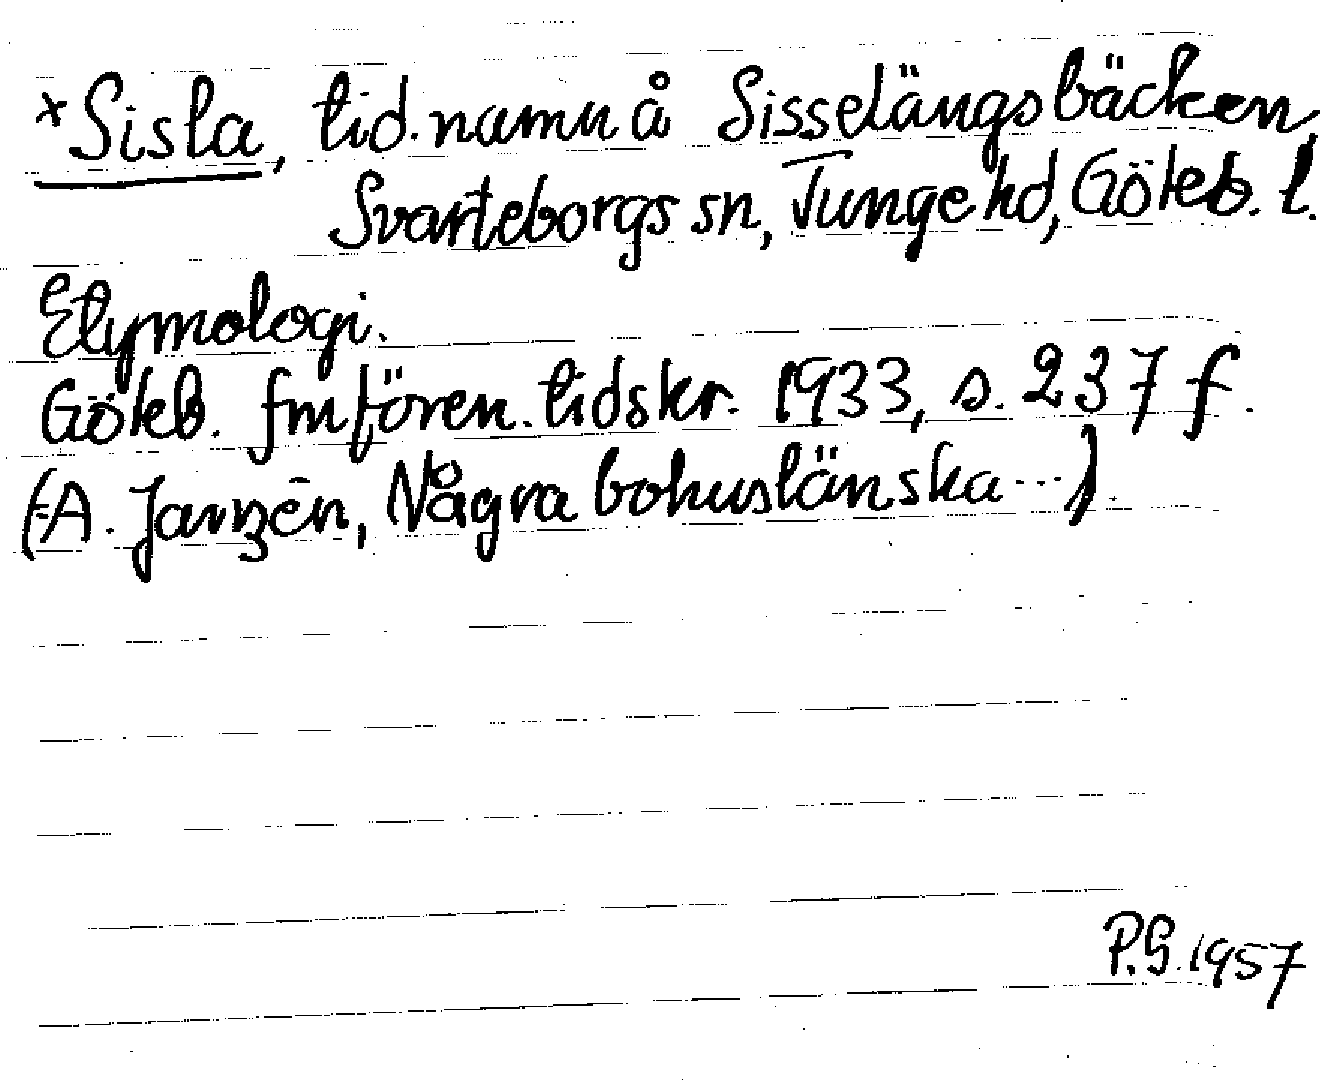 *Sisla, tid. namn å Sisselängsbäcken,
Svarteborgs sn, Tunge hd, Göteb. l.
Etymologi.
Göteb. fmfören. tidskr. 1933, s. 237 f.
(A. Janzén, Några bohuslänska ...).
P.G. 1957